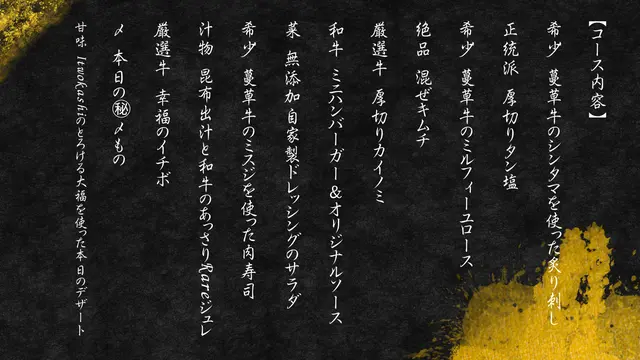 【コース内容】
希少 蔓草牛のシンタマを使った炙り刺し
正統派 厚切りタン塩
希少 蔓草牛のミルフィーユロース
絶品 混ぜキムチ
厳選牛 厚切りカイノミ
和牛 ミニハンバーガー&オリジナルソース
菜 無添加自家製ドレッシングのサラダ
希少 蔓草牛のミスジを使った肉寿司
汁物 昆布出汁と和牛のあっさりRareジュレ
厳選牛 幸福のイチボ
〆 本日の㊙〆もの
甘味 Itwokashiのとろける大福を使った本日のデザート